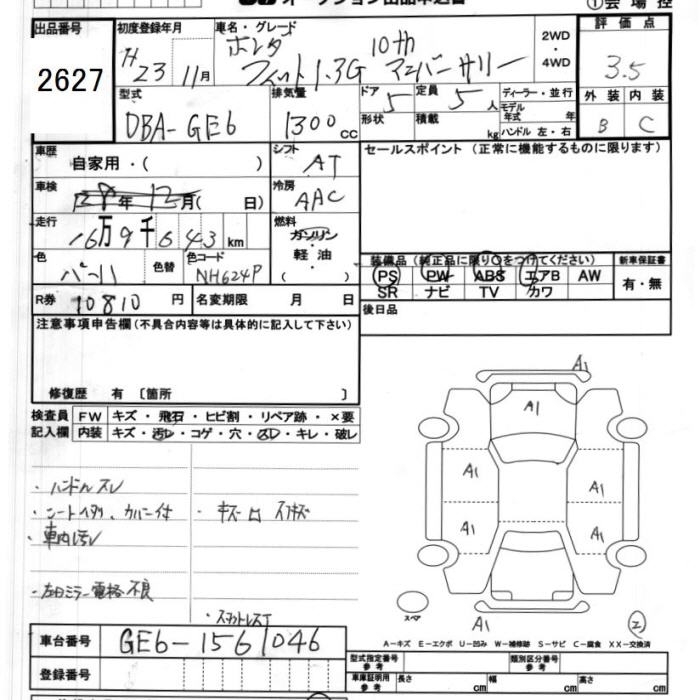 ①会場控
出品番号 初度登録年月 車名・グレード 評価点
2627 H23 11月 ホンダ 10th 2WD・4WD 3.5
フィット1.3G アニバーサリー
型式 排気量 ドア 定員 ディーラー・並行 外装 内装
DBA-GE6 1300cc 5 5人 モデル年式 年 B C
形状 積載 kg ハンドル 左・右
車歴 自家用・( ) シフト AT セールスポイント (正常に機能するものに限ります)
車検 年12月( 日) 冷房 AAC
走行 16万9千643km 燃料 ガソリン・軽油・( )
色 パール 色替 色コード NH624P
装備品 (純正品に限り○をつけてください) 新車保証書
PS PW ABS エアB AW 有・無
SR ナビ TV カワ
R券 10810円 名変期限 月 日 後日品
注意事項申告欄 (不具合内容等は具体的に記入して下さい)
修復歴 有 〔箇所 〕
検査員 FW キズ・飛石・ヒビ割・リペア跡・×要
記入欄 内装 キズ・汚レ・コゲ・穴・スレ・キレ・破レ
A1
A1
・ハンドルスレ
A1 A1
・シートヘタリ、カバー付 ・キズ
・車内汚レ
A1 A1
・左ミラー電格不良
スペア
A1 ②
A-キズ E-エクボ U-凹み W-補修跡 S-サビ C-腐食 XX-交換済
車台番号 GE6-1561046
型式指定番号 参考 類別区分番号 参考
登録番号 車庫証明用 参考 長さ cm 幅 cm 高さ cm